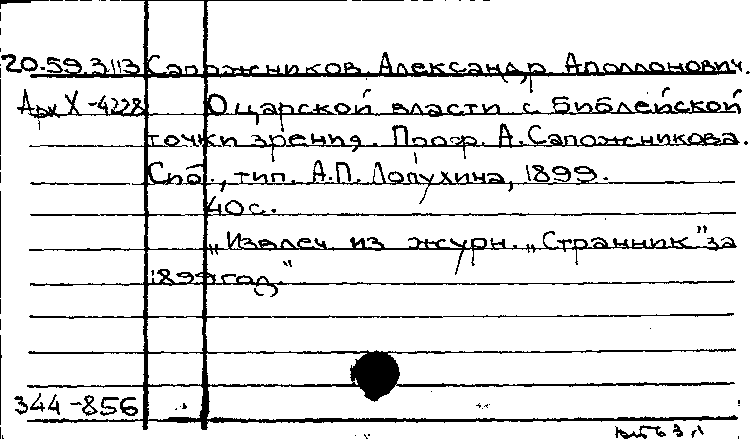 20.59.3113 Сапожников, Александр Аполлонович.
Арх X-4228 О царской власти с Библейской
точки зрения. Проф. А. Сапожникова.
Спб., тип. А.П. Лопухина, 1899.
40 с.
„Извлеч. из журн. „Странник" за
1899 год."
344-856